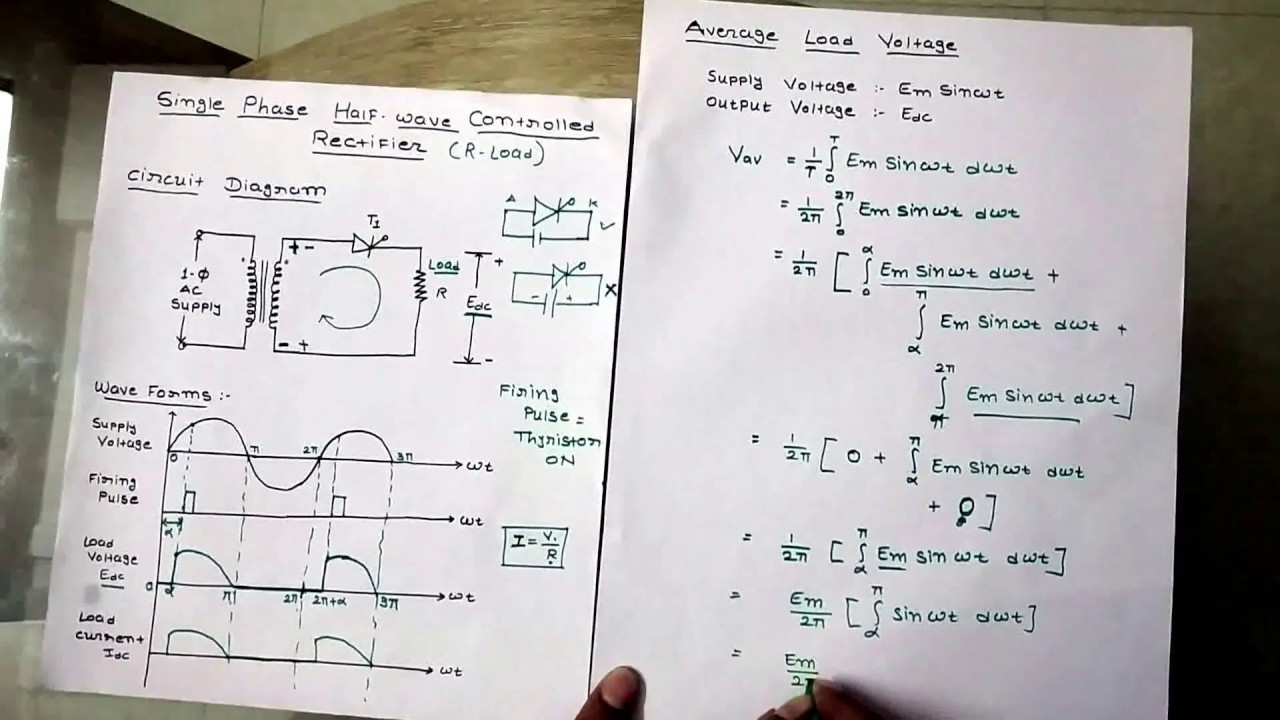 Single Phase Half-wave Controlled
Rectifier (R-Load)
Circuit Diagram
T1
+ -
1-Φ
AC
Supply
Load
R
+
Edc
-
- +
A K
✓
- +
X
Wave Forms :-
Supply
Voltage
0 π 2π 3π ωt
Firing
Pulse
α ωt
Load
Voltage
Edc
0 α π 2π 2π+α 3π ωt
Load
current
Idc
ωt
Firing
Pulse =
Thyristor
ON
I = V/R
Average Load Voltage
Supply Voltage :- Em Sinωt
Output Voltage :- Edc
Vav = 1/T ∫₀ᵀ Em Sinωt dωt
= 1/2π ∫₀^2π Em sinωt dωt
= 1/2π [ ∫₀^α Em Sinωt dωt +
∫α^π Em Sinωt dωt +
∫π^2π Em Sinωt dωt ]
= 1/2π [ 0 + ∫α^π Em Sinωt dωt
+ 0 ]
= 1/2π [ ∫α^π Em sin ωt dωt ]
= Em/2π [ ∫α^π Sin ωt dωt ]
= Em